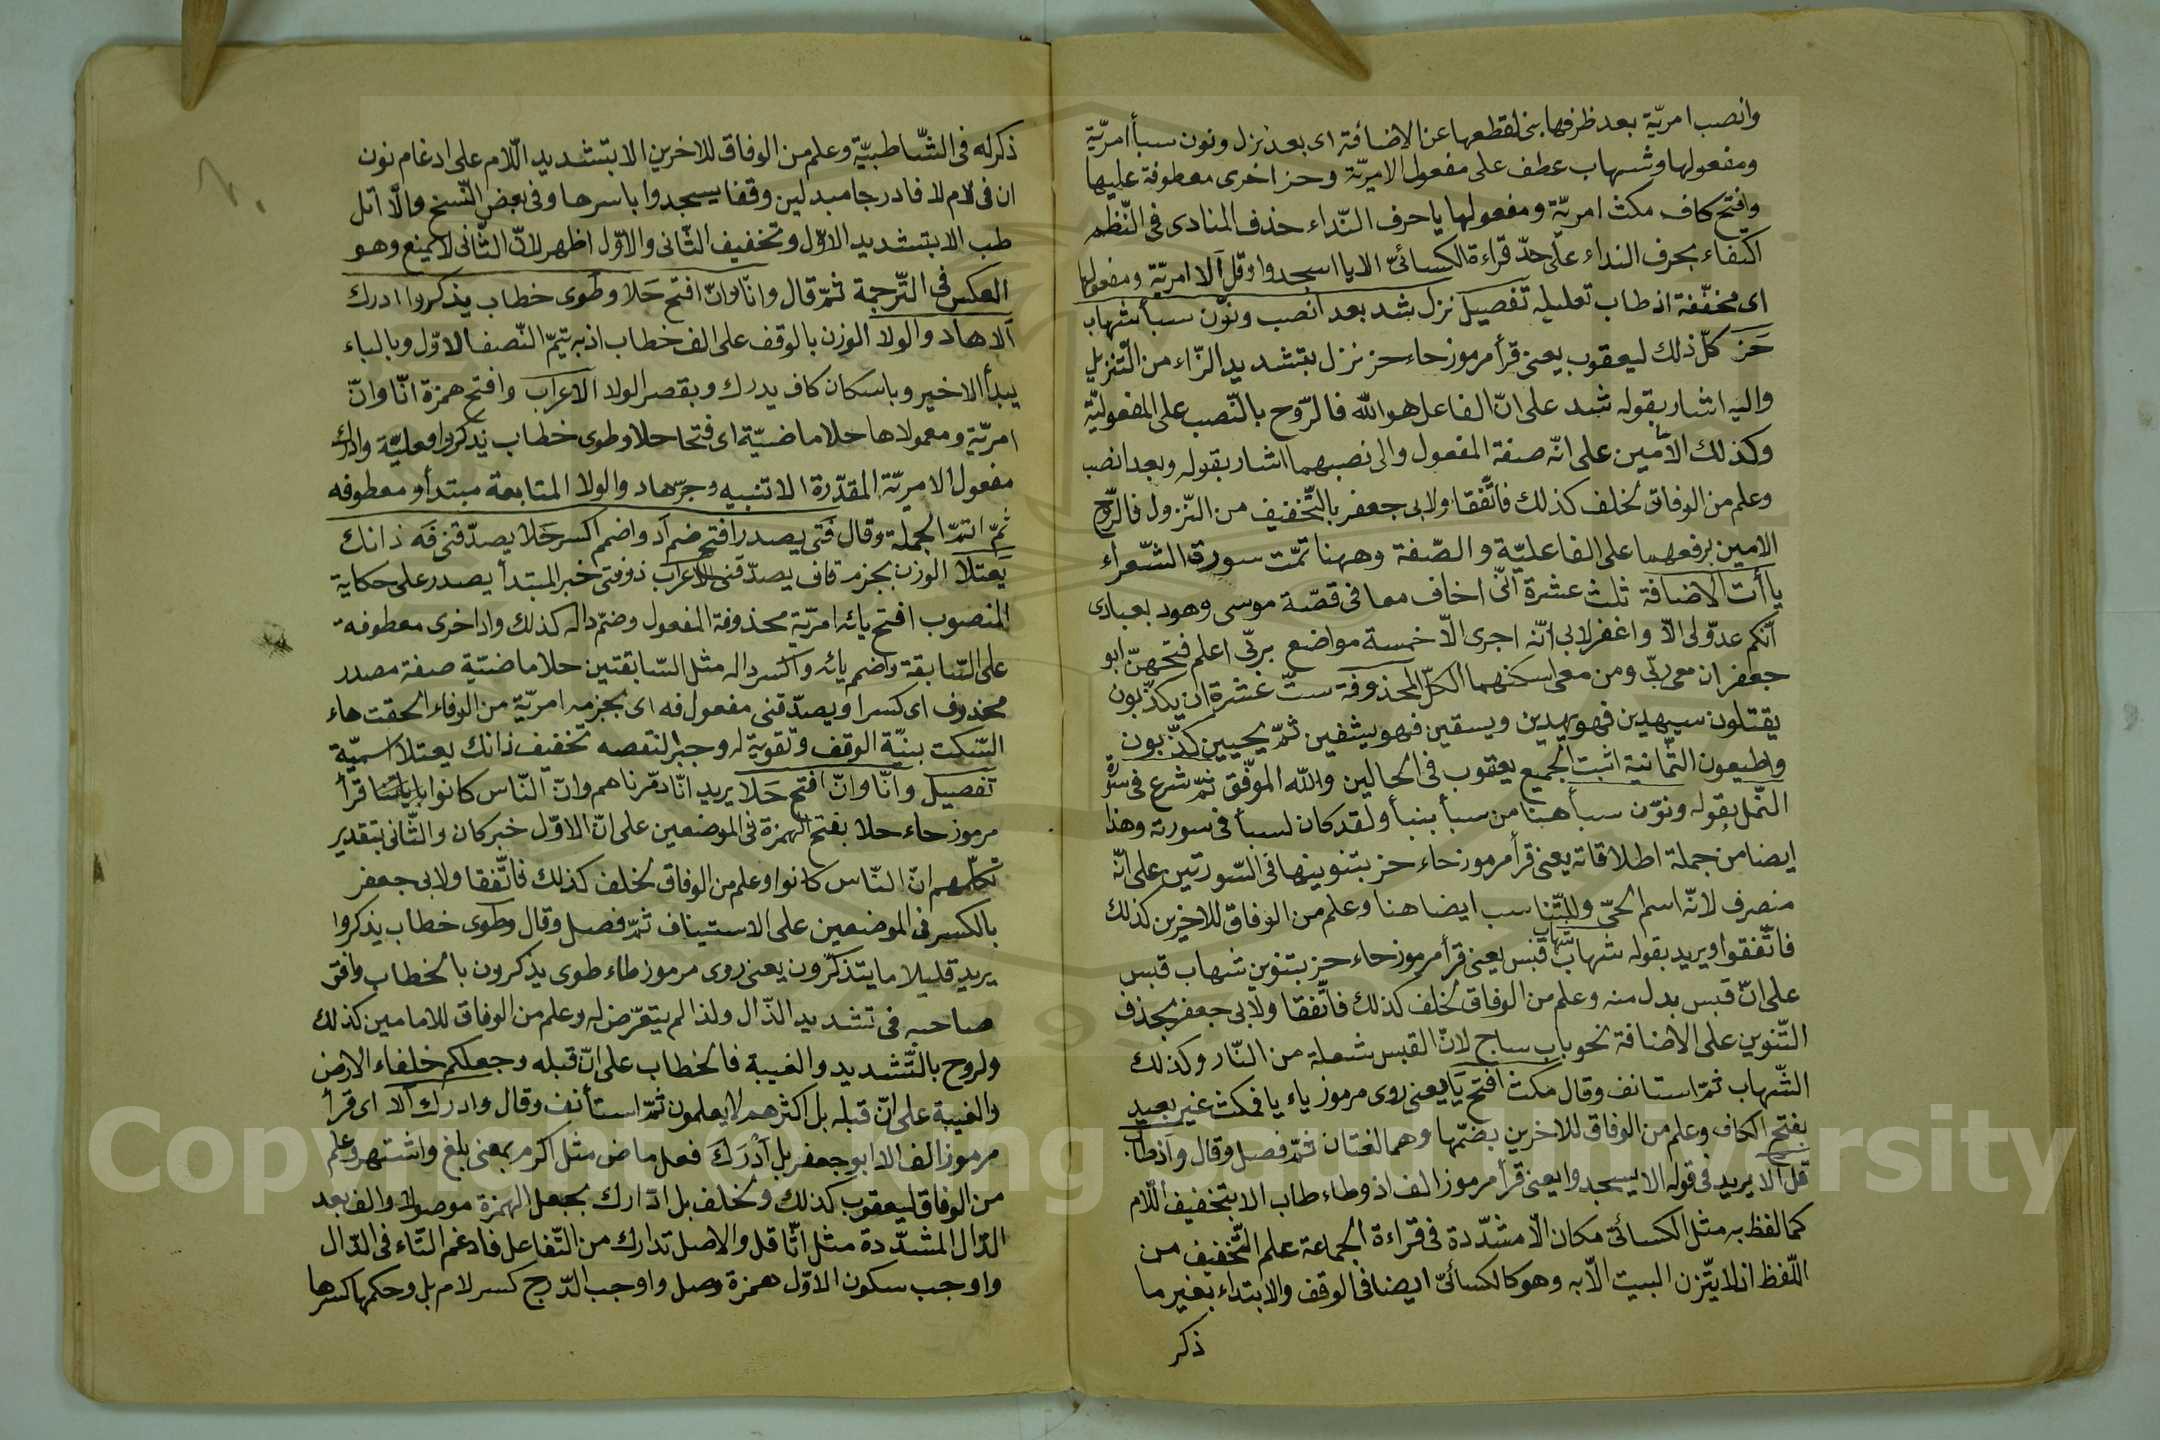 وانصب امريّة بعد ظرفها بنى لقطعها عن الاضافة اى بعد نزل ونون سبأ امريّة
ومفعولها وشهاب عطف على مفعول الامريّة وحز اخرى معطوفة عليها
وافتح كاف مكث امريّة ومفعولها يا حرف النّداء حذف المنادى فى النّظم
اكتفاء بحرف النداء على حدّ قراءة الكسائىّ الا يا اسجدوا وقل ألا امريّة ومفعولها
اى مخفّفة اذ طاب تعليله تفصيل نزل شد بعد انصب ونوّن سبأ شهاب
حز كلّ ذلك ليعقوب يعنى قرأ مرموز حاء حز نزل بتشديد الزّاء من التّنزيل
واليه اشار بقوله شد على انّ الفاعل هو الله فالرّوح بالنّصب على المفعوليّة
وكذلك الامين على انّه صفة المفعول والى نصبهما اشار بقوله وبعد انصب
وعلم من الوفاق لخلف كذلك فاتّفقا ولابى جعفر بالتّخفيف من النّزول فالرّوح
الامين برفعهما على الفاعليّة والصّفة وههنا تمّت سورة الشّعراء
يا أت الاضافة ثلث عشرة انّى اخاف معا فى قصّة موسى وهود بعبادى
انّكم عدوّ لى الّا واغفر لابى انّه اجرى الّا خمسة مواضع بربّى اعلم فتحهنّ ابو
جعفر ان معى ربّى ومن معى اسكنهما الكلّ المحذوفة ستّ عشرة ان يكذّبون
يقتلون سيهدين فهو يهدين ويسقين فهو يشفين ثمّ يحيين كذّبون
واطيعون الثّمانية اثبت الجميع يعقوب فى الحالين والله الموفّق ثمّ شرع فى سورة
النّمل بقوله ونوّن سبأ هنا من سبأ بنبأ ولقد كان لسبأ فى سورته وهذا
ايضا من جملة اطلاقاته يعنى قرأ مرموز حاء حز بتنوينها فى السّورتين على انّه
منصرف لانّه اسم الحىّ وللتّناسب ايضا هنا وعلم من الوفاق للاخرين كذلك
فاتّفقوا ويريد بقوله شهاب شهاب قبس يعنى قرأ مرموز حاء حز بتنوين شهاب قبس
على انّ قبس بدل منه وعلم من الوفاق لخلف كذلك فاتّفقا ولابى جعفر بحذف
التّنوين على الاضافة نحو باب ساج لانّ القبس شعلة من النّار وكذلك
الشّهاب ثمّ استانف وقال مكث افتح يا يعنى روى مرموز ياء يا فمكث غير بعيد
بفتح الكاف وعلم من الوفاق للاخرين بضمّها وهما لغتان ثمّ فصل وقال واذ طاب
قل ألا يريد فى قوله الا يسجدوا يعنى قرأ مرموز الف اذ وطاء طاب الا بتخفيف اللّام
كما لفظ به مثل الكسائىّ مكان الّا مشدّدة فى قراءة الجماعة علم التّخفيف من
اللّفظ اذ لا يتّزن البيت الّا به وهو كالكسائىّ ايضا فى الوقف والابتداء بغير ما
ذكر
ذكر له فى الشّاطبيّة وعلم من الوفاق للاخرين الا بتشديد اللّام على ادغام نون
ان فى لام لا فادرجا مبدلين وقفا يسجدوا باسرها وفى بعض النّسخ والّا اتل
طب الا بتشديد الاوّل وتخفيف الثّانى والاوّل اظهر لانّ الثّانى لا يمنع وهو
العكس فى التّرجمة ثمّ قال وانّا وانّ افتح حلا وطوى خطاب يذكروا ادرك
ألا هاد والولا الوزن بالوقف على الف خطاب اذ به يتمّ النّصف الاوّل وبالباء
يبدأ الاخير وباسكان كاف يدرك وبقصر الولا الاعراب وافتح همزة انّا وانّ
امريّة ومعمولاها حلا ماضيّة اى فتحا حلا وطوى خطاب يذكروا فعليّة وادرك
مفعول الامريّة المقدّرة الا تنبيه وجرّ هاد والولا المتابعة مبتدأ ومعطوفه
ثمّ اتمّ الجملة وقال فتى يصدر افتح ضم أد واضمم اكسر حلا يصدّقنى فه ذانك
يعتلا الوزن بجزم قاف يصدّقنى الاعراب ذو فتى خبر المبتدأ يصدر على حكاية
المنصوب افتح يائه امريّة محذوفة المفعول وضمّ داله كذلك واد اخرى معطوفة
على السّابقة واضمم يائه واكسر داله مثل السّابقتين حلا ماضيّة صفة مصدر
محذوف اى كسرا ويصدّقنى مفعول فه اى بجزمه امريّة من الوفاء الحقت هاء
السّكت بنيّة الوقف وتقوية له وجبر النقصه تخفيف ذانك يعتلا اسميّة
تفصيل وانّا وانّ افتح حلا يريد انّا دمّرناهم وانّ النّاس كانوا باياتنا قرأ
مرموز حاء حلا بفتح الهمزة فى الموضعين على انّ الاوّل خبر كان والثّانى بتقدير
تكلّمهم انّ النّاس كانوا وعلم من الوفاق لخلف كذلك فاتّفقا ولابى جعفر
بالكسر فى الموضعين على الاستيناف ثمّ فصل وقال وطوى خطاب يذكروا
يريد قليلا ما يتذكّرون يعنى روى مرموز طاء طوى يذكرون بالخطاب وافق
صاحبه فى تشديد الذّال ولذا لم يتعرّض له وعلم من الوفاق للامامين كذلك
ولروح بالتّشديد والغيبة فالخطاب على انّ قبله وجعلكم خلفاء الارض
والغيبة على انّ قبله بل اكثرهم لا يعلمون ثمّ استأنف وقال وادرك ألا اى قرأ
مرموز الف الا ابو جعفر بل أدرك فعل ماض مثل اكرم بمعنى بلغ واشتهر وعلم
من الوفاق ليعقوب كذلك ولخلف بل ادّارك بجعل الهمزة موصولا والف بعد
الدّال المشدّدة مثل اثّاقل والاصل تدارك من التّفاعل فادغم التّاء فى الدّال
واوجب سكون الاوّل همزة وصل واوجب الدّرج كسر لام بل وحكمها كسرها
Copyright © King Saud University